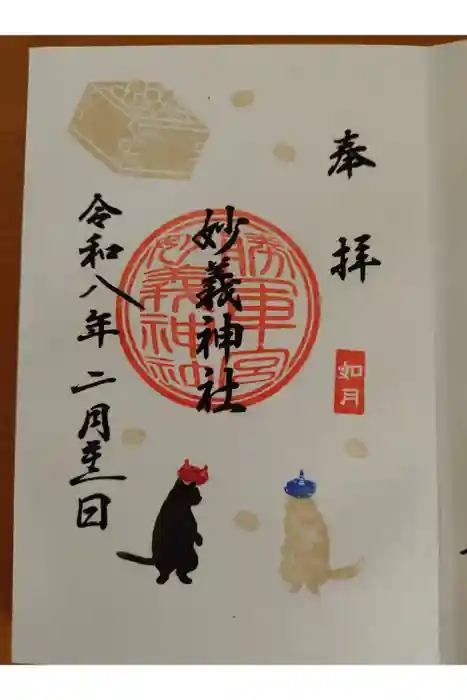 奉拝
如月
妙義神社
勝軍宮
妙義神社
令和八年二月 日